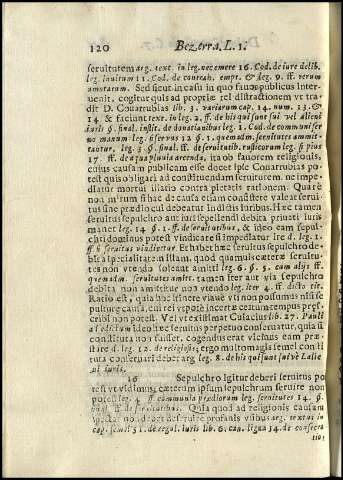 120 Bezerra, L. 1.
seruitutem arg. text. in leg. nec emere 16. Cod. de iure delib.
leg. inuitum 11. Cod. de contrah. empt. & leg. 9. ff. rerum
amotarum. Sed sicut in casu in quo fauor publicus inter-
uenit, cogitur quis ad propriæ rei distractionem vt tra-
dit D. Couarrubias lib. 3. variarum cap. 14. num. 13. &
14. & faciunt text. in leg. 2. ff. de his qui sunt sui vel alieni
iuris §. final. instit. de donationibus leg. 1. Cod. de communi ser
uo manum leg. si seruus 12 § 1. quem adm. seruitutes ammit-
tantur, leg. 3 §. final. ff. de seruitutib. rusticorum leg. si prius
17. ff. de aqua pluuia arcenda, ita ob fauorem religionis,
cuius causam publicam esse docet ipse Couarrubias po-
test quis obligari ad constituendam seruitutem, ne impe-
diatur mortui illatio contra pietatis rationem. Quare
non mirum si hac de causa etiam consistere valeat serui-
tus sine prædio cui debeatur in dictis iuribus. Hæc tamen
seruitus sepulchro aut iuri sepeliendi debita priuati iuris
manet leg. 14 §. 1. ff. de seruitutibus, & ideo eam sepul-
chri dominus potest vindicare si impediatur iter d. leg. 1.
ff. si seruitus vindicetur. Et habet hæc seruitus sepulchro de-
bita specialitatem istam, quod quamuis cæteræ seruitu-
tes non vtendo soleant amitti leg. 6. §. 5. cum alijs ff.
quemadm. seruitutes amitt. tamen iter aut via sepulchro
debita non amittitur non vtendo leg. iter 4. ff. dicto tit.
Ratio est, quia hoc itinere viaue vti non possumus nisi se
pulturæ causa, cui rei vt pote incertæ certum tempus præs-
cribi non potest. Vel vt existimat Cuiacius lib. 27. Pauli
ad edictum ideo hæc seruitus perpetuo conseruatur, quia si
constituta non fuisset, cogendus erat vicinus eam præ-
stare d. leg. 12. de religiosis, ergo multo magis semel consti
tuta conseruari debet arg leg. 8. de his qui sunt sui vel alie
ni iuris.
16 Sepulchro igitur deberi seruitus po
test vt vidimus, cæterum ipsum sepulchrum seruire non
potest leg. 4 ff communia prædiorum leg. seruitutes 14. §.
final ff de seruitutibus. Quia quod ad religionis causam
spectat non debet deseruire profanis vsibus arg. textus in
cap. semel 51. de regul. iuris lib. 6. can. ligna 34. de consecra
tio: